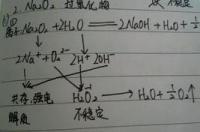 2. Na₂O₂ 过氧化钠
Na₂O₂ + 2H₂O ══ 2NaOH + H₂O + ½O₂
2Na⁺ + O₂²⁻ 2H⁺ 2OH⁻
共存,强电 H₂O₂ → H₂O + ½O₂↑
解质 不稳定